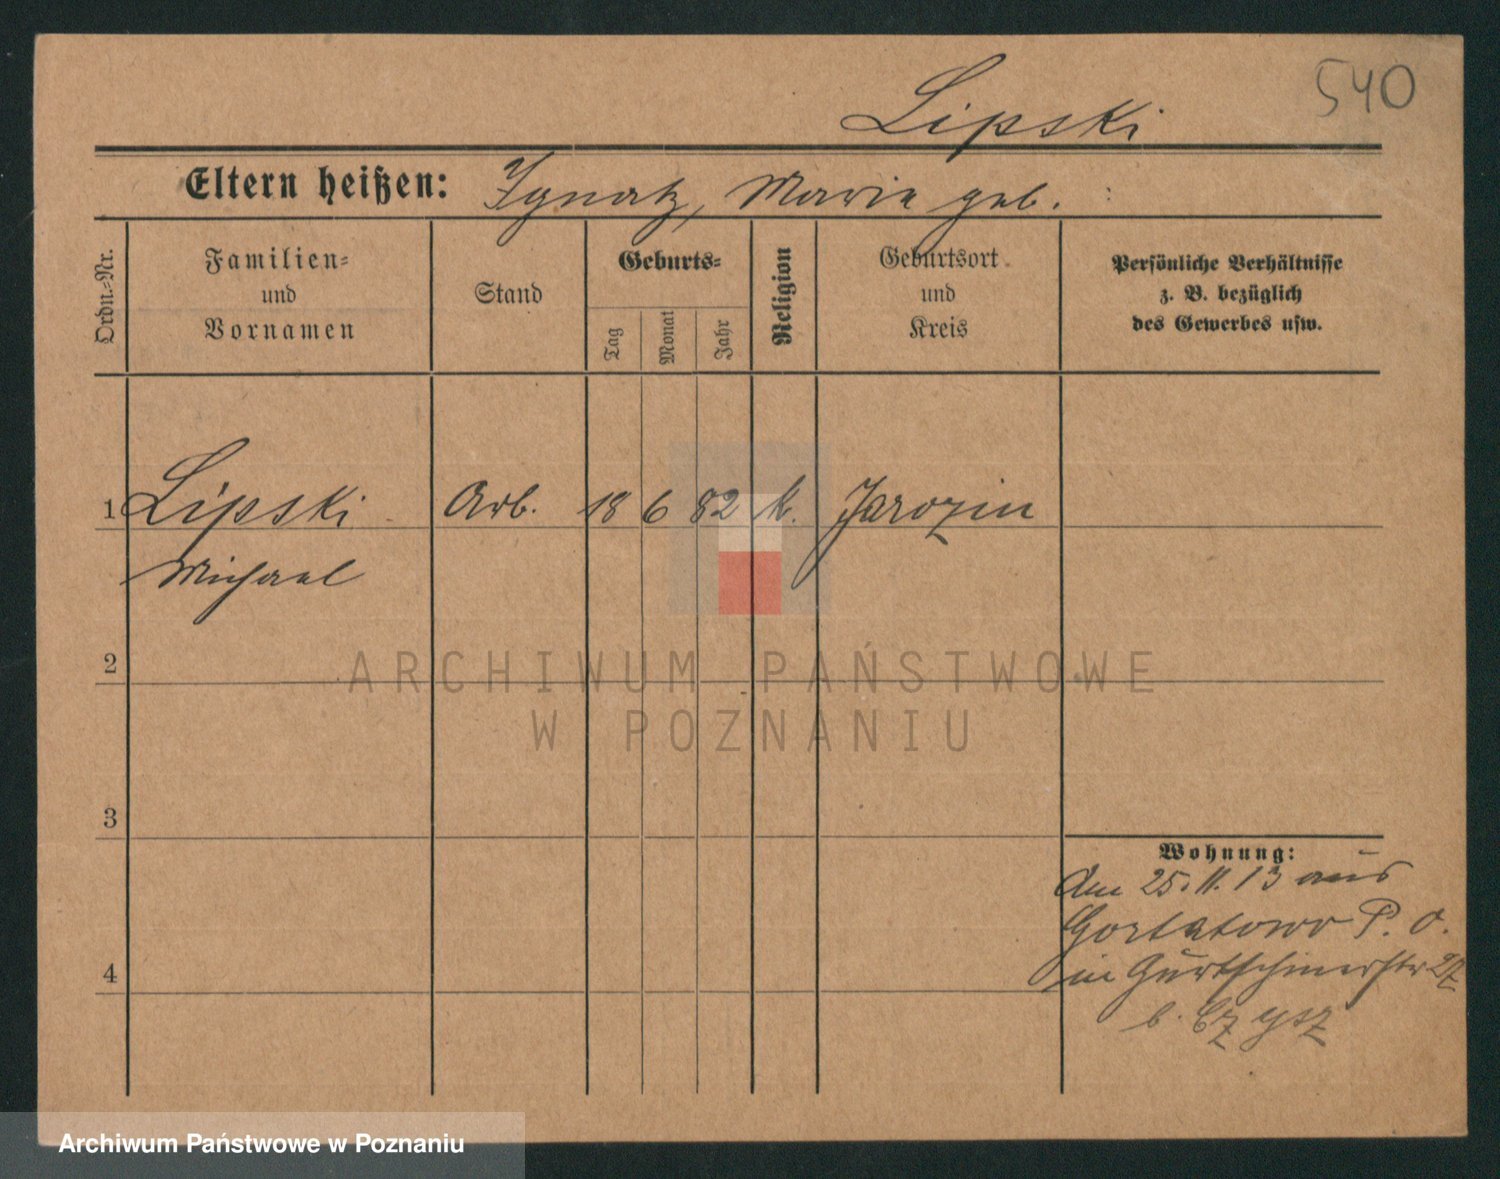 540
Lipski
Eltern heißen: Ignatz, Marie geb.
Ordn.-Nr.
Familien-
und
Vornamen
Stand
Geburts-
Tag
Monat
Jahr
Religion
Geburtsort
und
Kreis
Persönliche Verhältnisse
z. B. bezüglich
des Gewerbes usw.
1 Lipski Arb. 18 6 82 k. Jarozin
Michael
2
ARCHIWUM PAŃSTWOWE
W POZNANIU
3
Wohnung:
Am 25.11.13 aus
Gortatowo P. O.
4
in Gurtschinerstr 27
b.
Archiwum Państwowe w Poznaniu